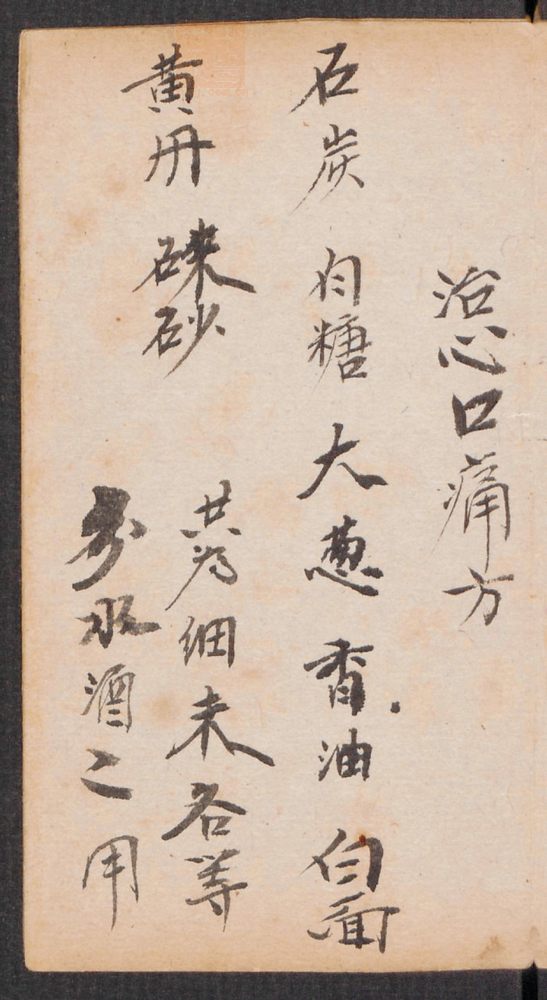 治心口痛方
石炭 白糖 大葱 香油 白面
黄丹 硃砂
共为细末各等
分水酒之用